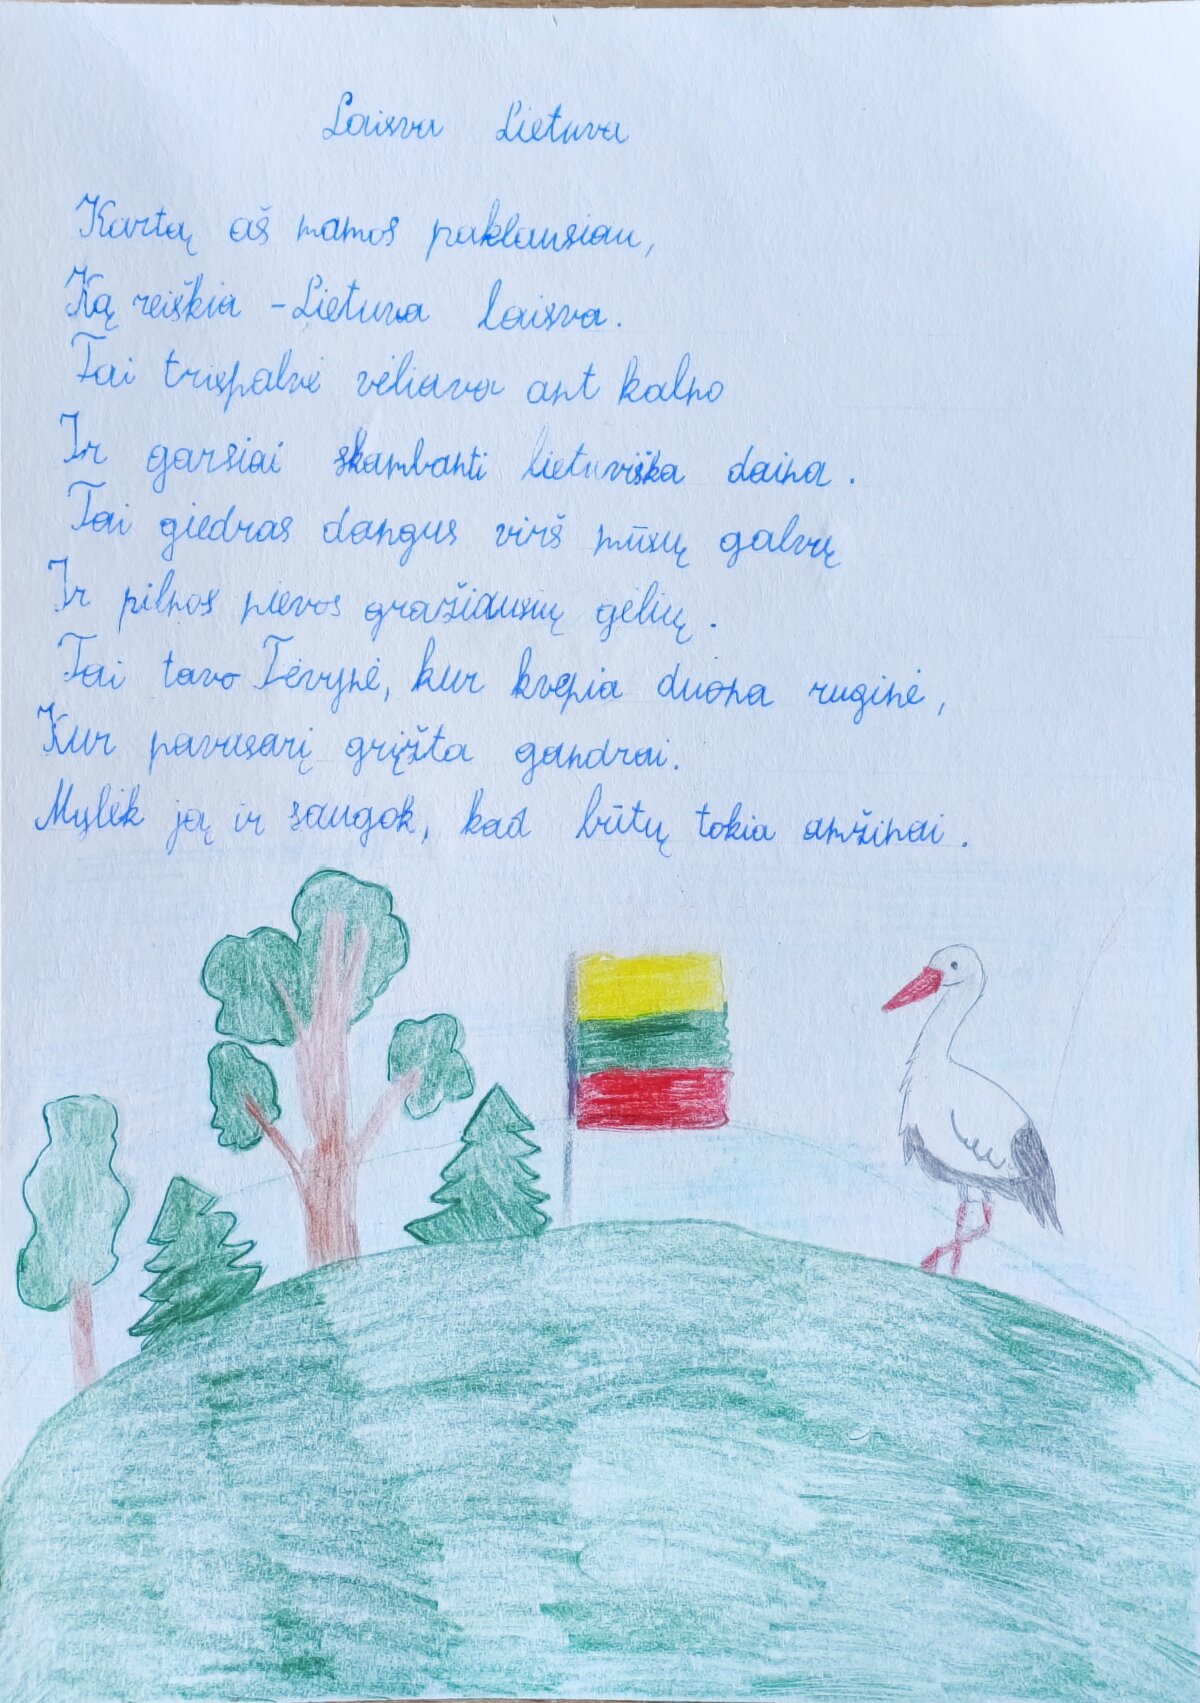 Laisva Lietuva
Kartą aš mamos paklausiau,
Ką reiškia - Lietuva laisva.
Tai trispalvė vėliava ant kalno
Ir garsiai skambanti lietuviška daina.
Tai giedras dangus virš mūsų galvų
Ir pilnos pievos gražiausių gėlių.
Tai tavo Tėvynė, kur kvepia duona ruginė,
Kur pavasarį grįžta gandrai.
Mylėk ją ir saugok, kad būtų tokia amžinai.